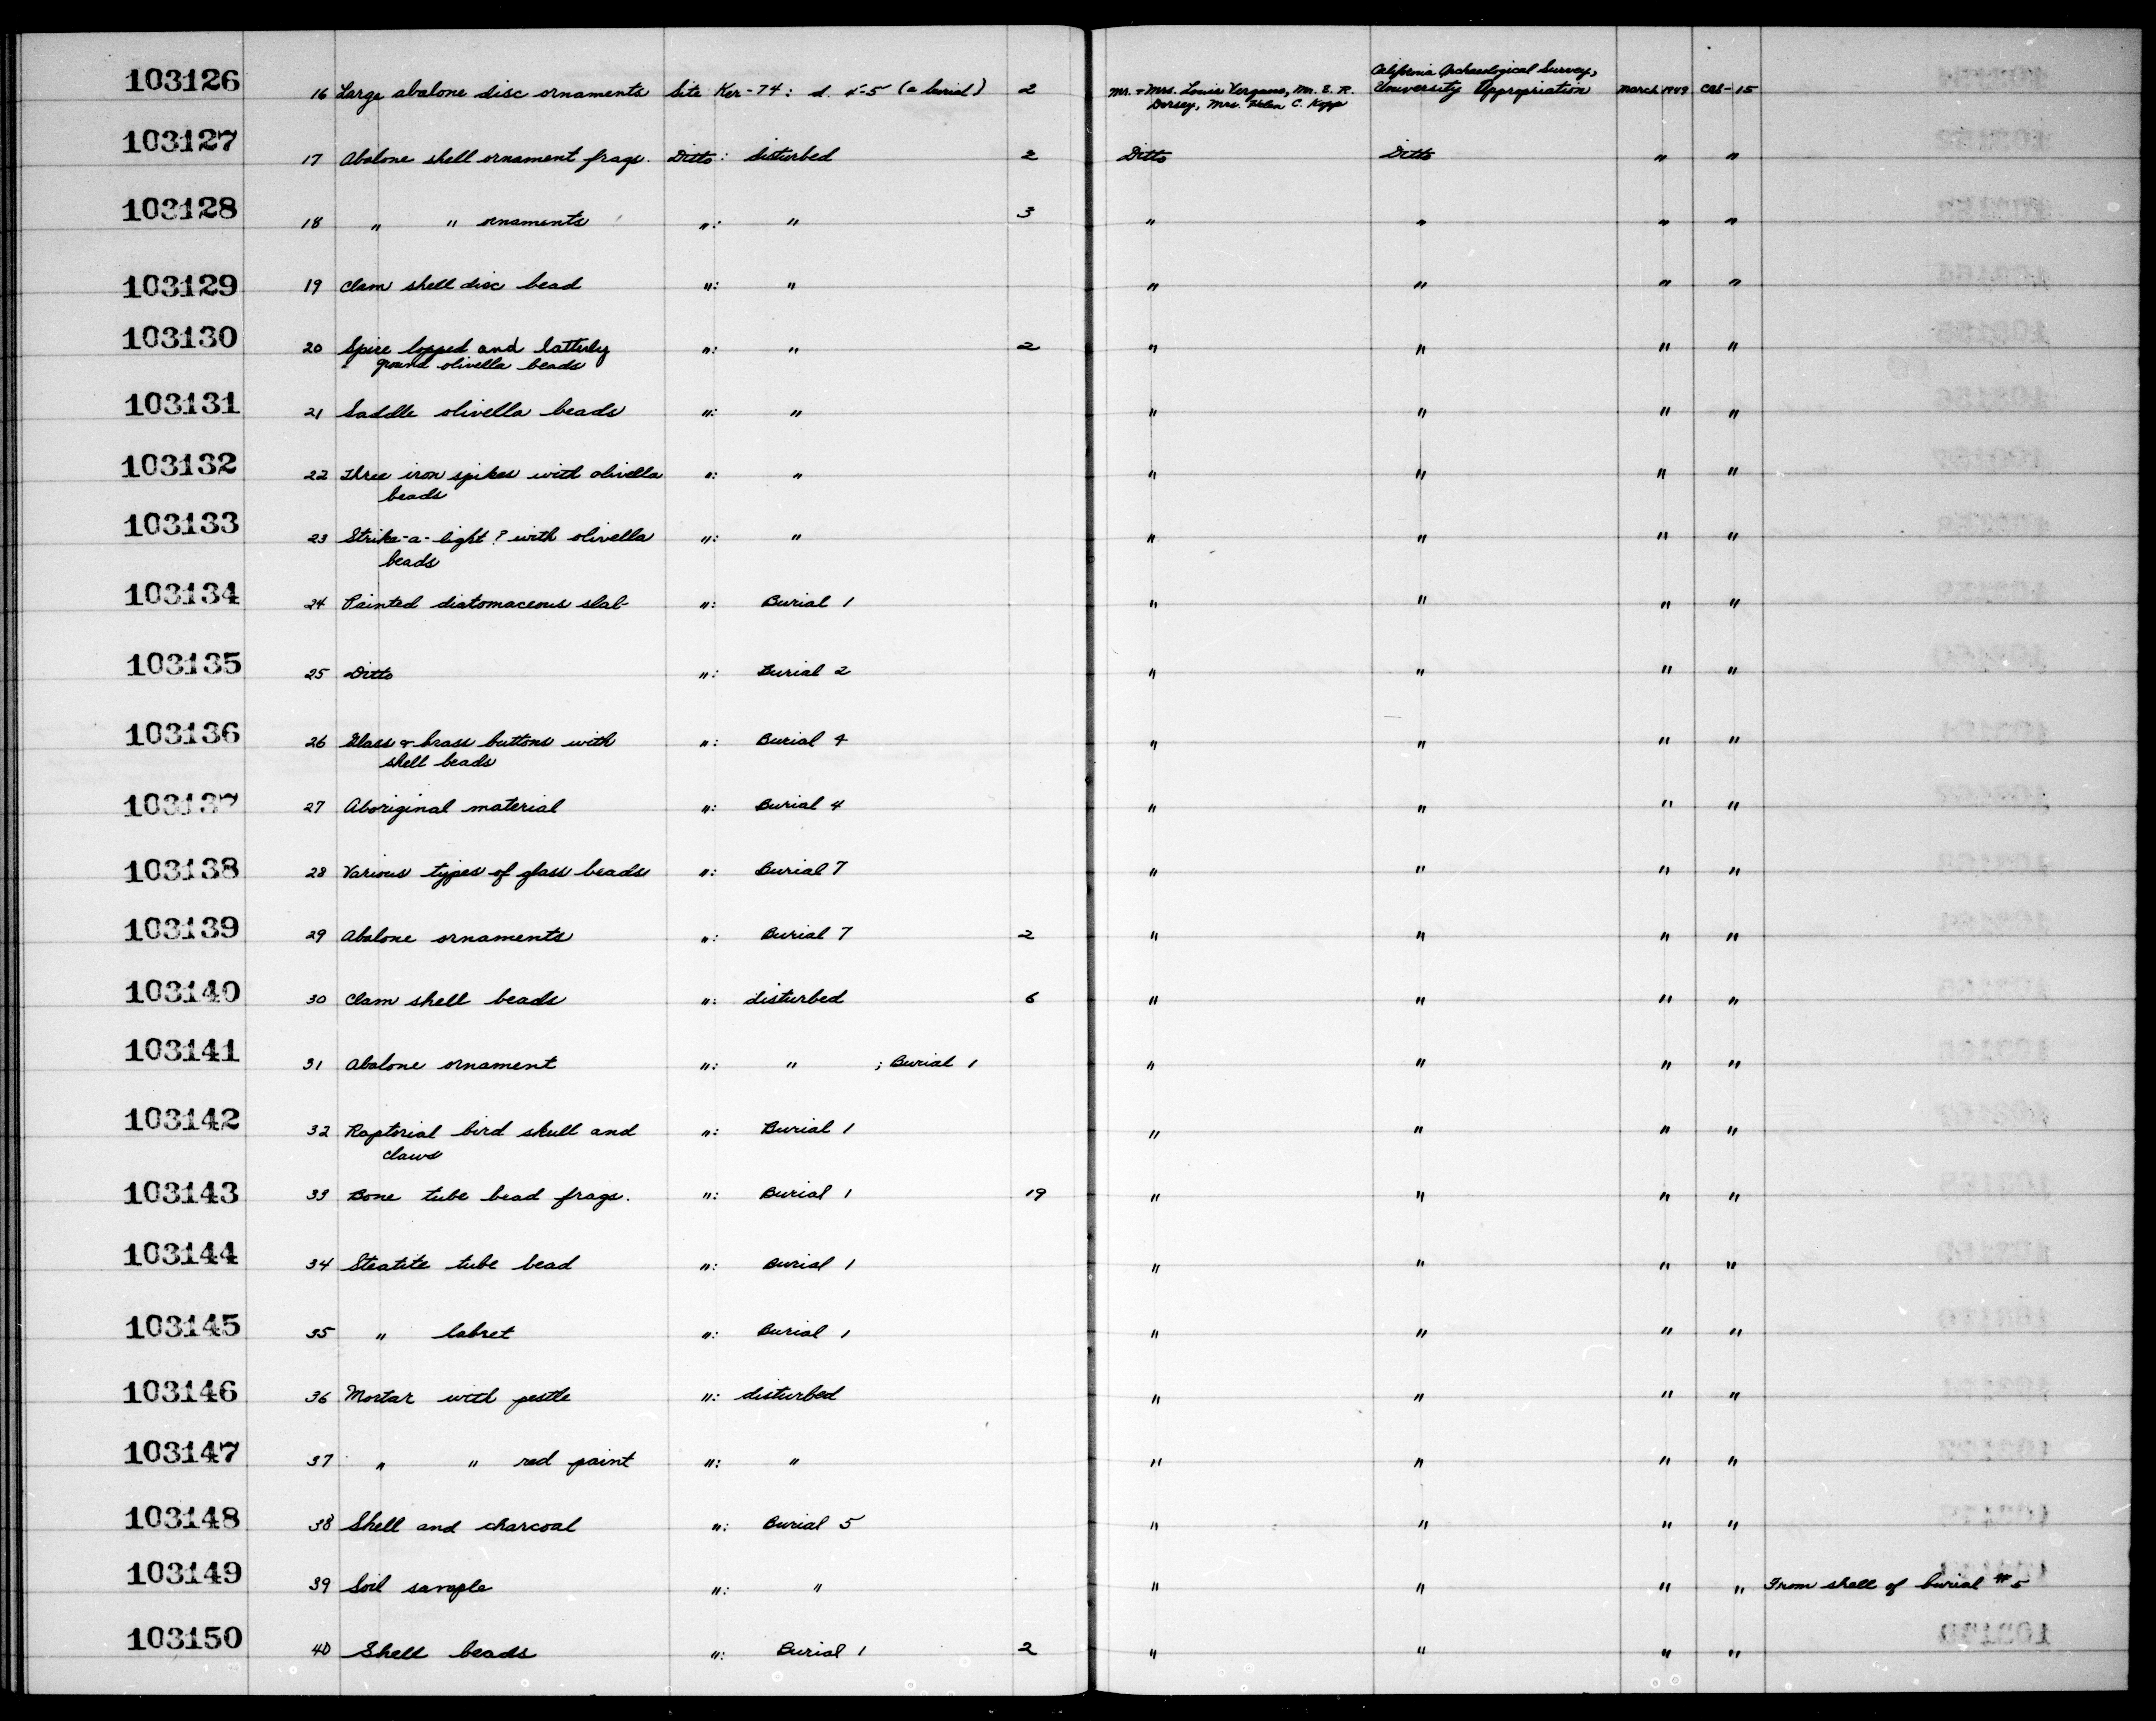 103126 16 Large abalone disc ornaments Site Ker-74: d. 4-5 (a burial) 2 Mr. + Mrs. Louis Vergans, Mr. E. R. Dorsey, Mrs. Helen C. Kipp California Archaeological Survey, University Appropriation March 1949 CAS-15
103127 17 Abalone shell ornament frags. Ditto: disturbed 2 Ditto Ditto " "
103128 18 " " ornaments ": " 3 " " " "
103129 19 Clam shell disc bead ": " " " " "
103130 20 Spire lopped and latterly ground olivella beads ": " 2 " " " "
103131 21 Saddle olivella beads ": " " " " "
103132 22 Three iron spikes with olivella beads ": " " " " "
103133 23 Strike-a-light? with olivella beads ": " " " " "
103134 24 Painted diatomaceous slab ": Burial 1 " " " "
103135 25 Ditto ": Burial 2 " " " "
103136 26 Glass + brass buttons with shell beads ": Burial 4 " " " "
103137 27 Aboriginal material ": Burial 4 " " " "
103138 28 Various types of glass beads ": Burial 7 " " " "
103139 29 Abalone ornaments ": Burial 7 2 " " " "
103140 30 Clam shell beads ": disturbed 6 " " " "
103141 31 Abalone ornament ": " ; Burial 1 " " " "
103142 32 Raptorial bird skull and claws ": Burial 1 " " " "
103143 33 Bone tube bead frags. ": Burial 1 19 " " " "
103144 34 Steatite tube bead ": Burial 1 " " " "
103145 35 " labret ": Burial 1 " " " "
103146 36 Mortar with pestle ": disturbed " " " "
103147 37 " " red paint ": " " " " "
103148 38 Shell and charcoal ": Burial 5 " " " "
103149 39 Soil sample ": " " " " " From shell of burial #5
103150 40 Shell beads ": Burial 1 2 " " " "